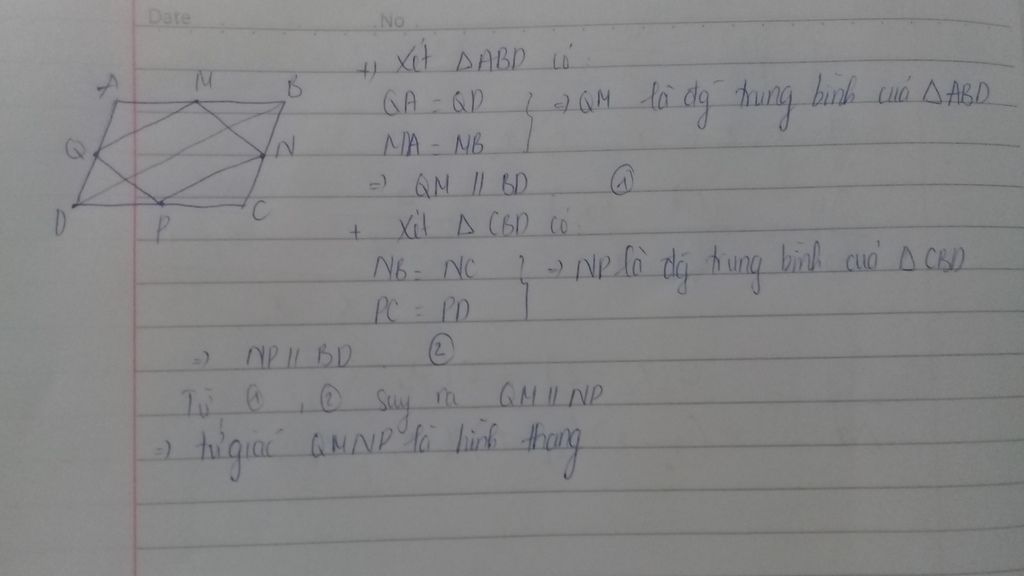 Date No
+) Xét ΔABD có:
QA = QD } => QM là đg trung bình của ΔABD
MA = MB
=> QM // BD ①
+ Xét Δ CBD có:
NB = NC } => NP là đg trung bình của Δ CBD
PC = PD
=> NP // BD ②
Từ ①, ② suy ra QM // NP
=> tứ giác QMNP là hình thang
A M B
Q N
D P C